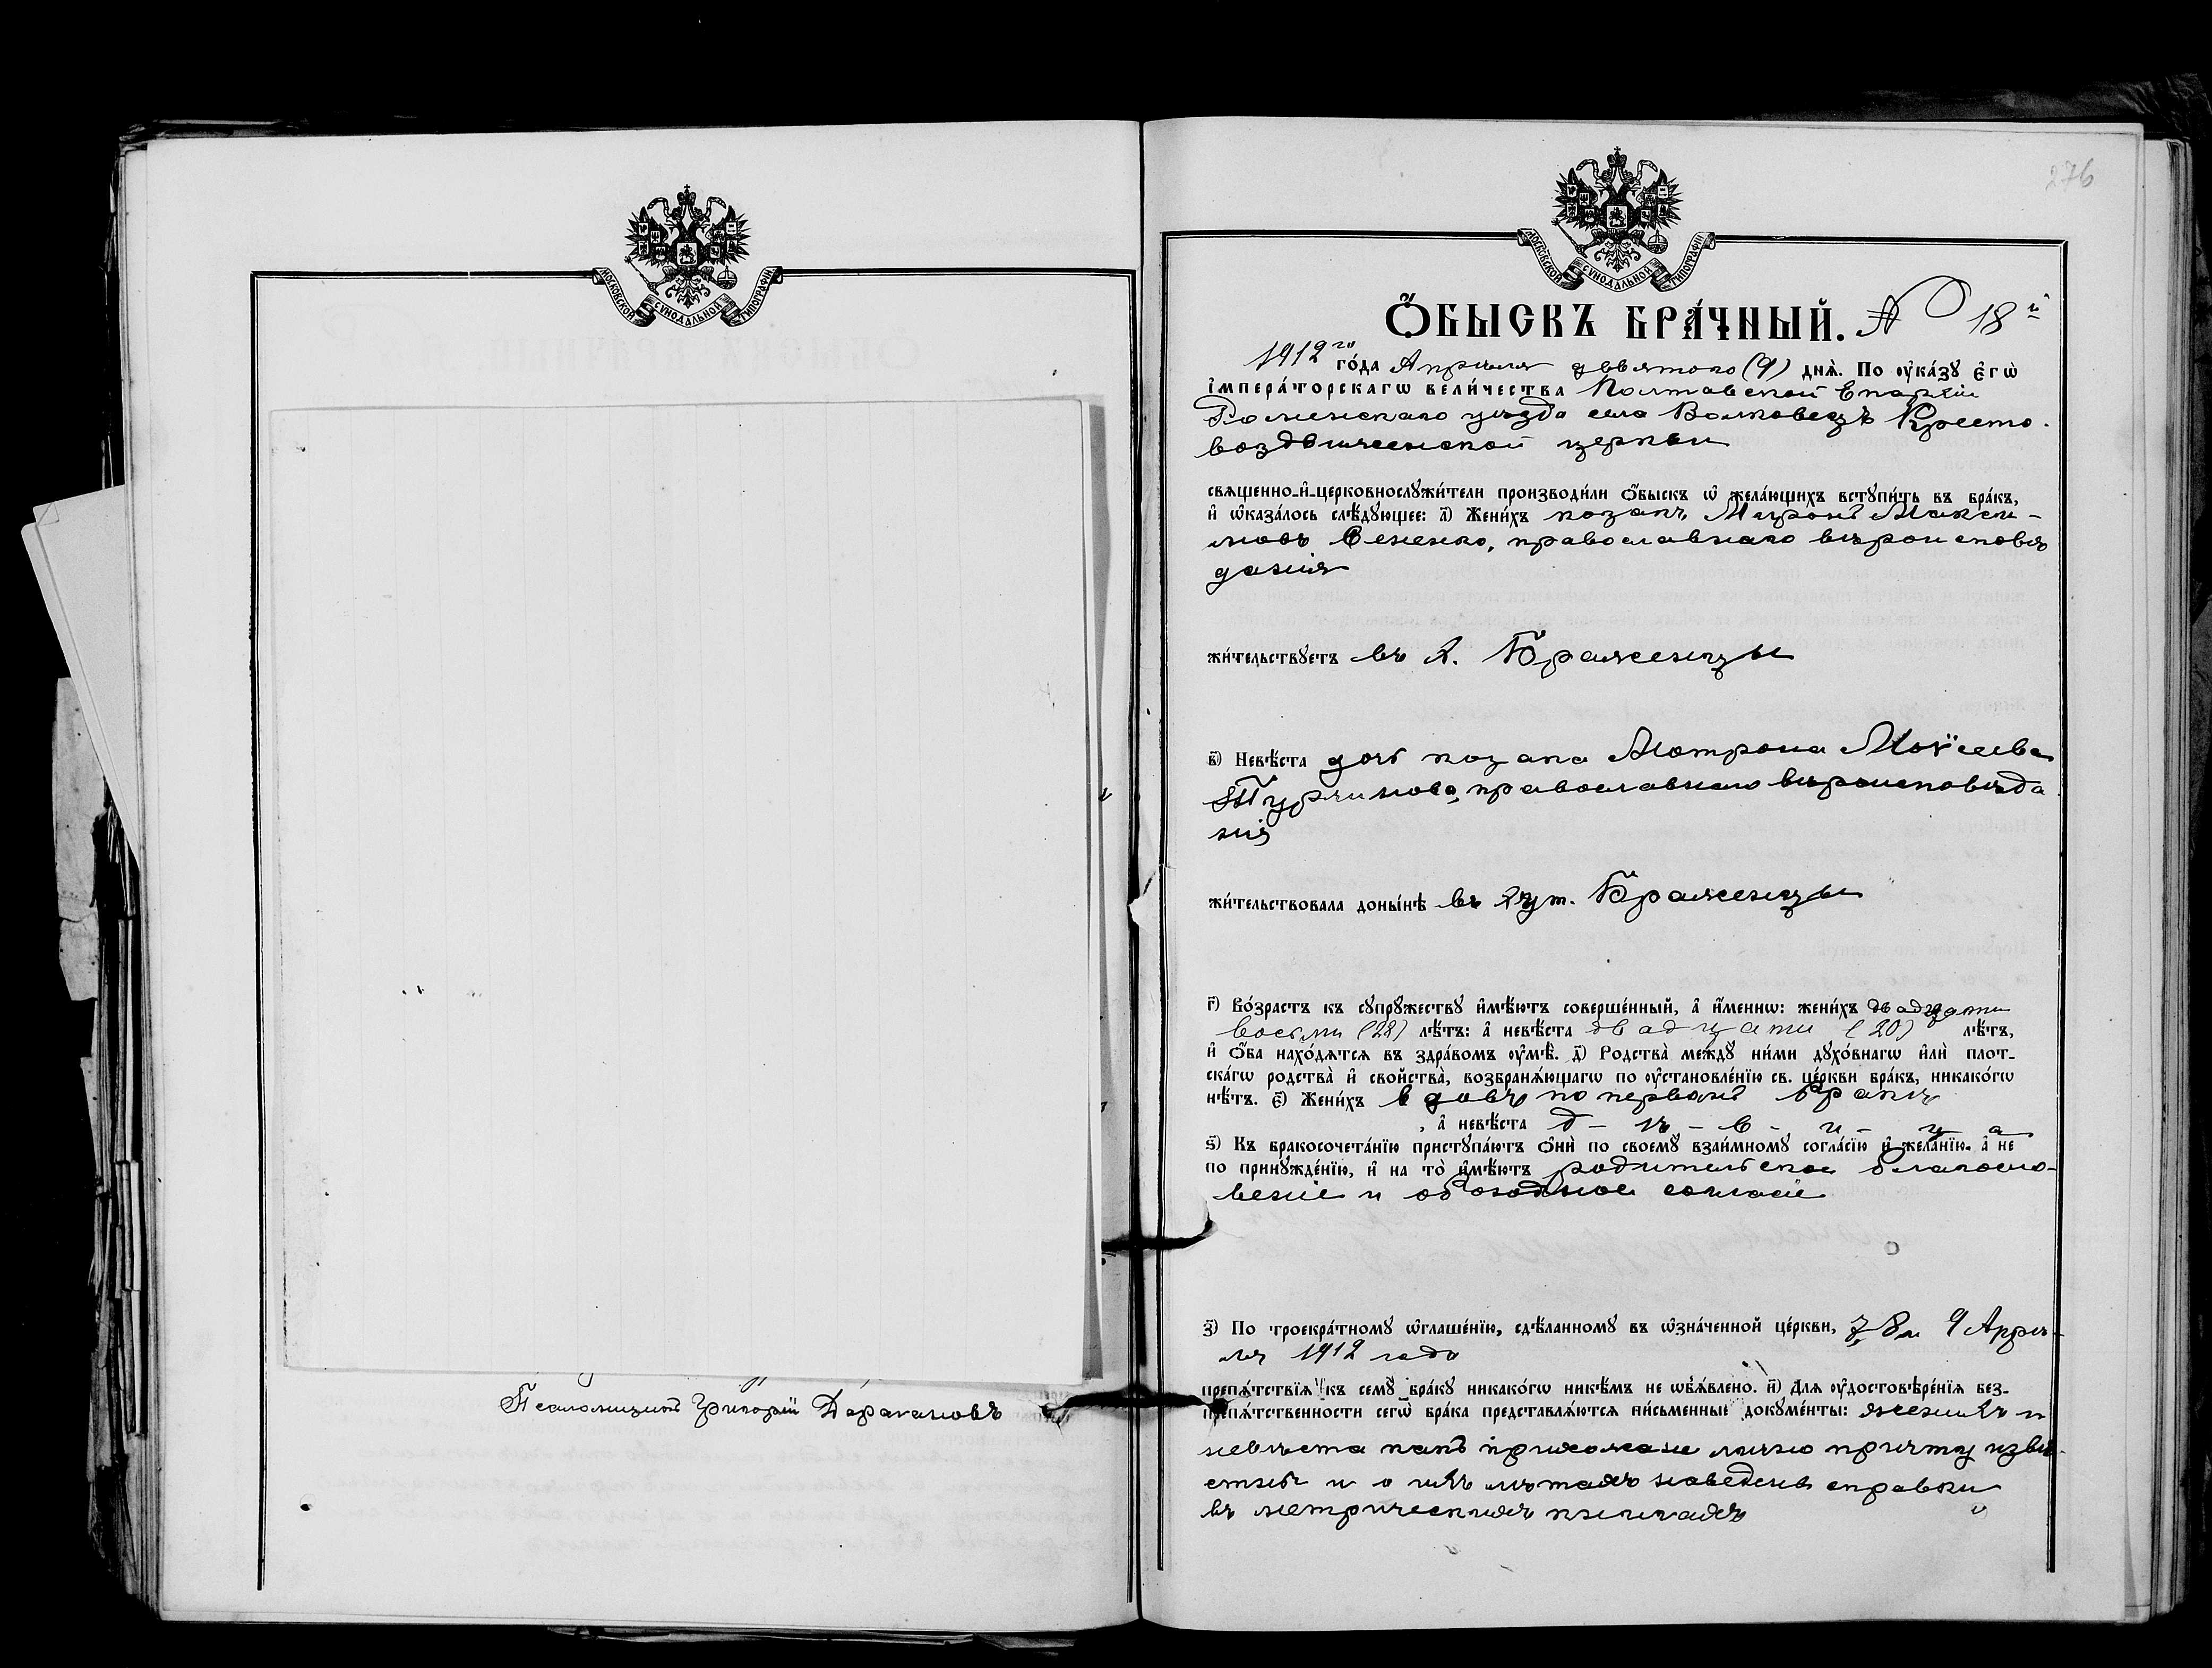 МОСКОВСКОЙ СѴНОДАЛЬНОЙ ТИПОГРАФІИ
Псаломщикъ Григорій Дарагановъ
276
МОСКОВСКОЙ СѴНОДАЛЬНОЙ ТИПОГРАФІИ
Ѻ҆БЫСКЪ БРА́ЧНЫЙ. № 18й
1912го го́да Апрѣля девятаго (9) днѧ̀. По ᲂу҆ка́зꙋ є҆гѡ̀
і҆мпера́торскагѡ вели́чества Полтавской Епархіи
Роменскаго уѣзда села Волковецъ Кресто-
воздвиженской церкви
свѧщенно-и҆-церковнослꙋжи́тели производи́ли ѻ҆́быскъ ѡ҆ жела́ющихъ встꙋпи́ть въ бра́къ,
и҆ ѡ҆каза́лось слѣ́дꙋющее: а҃) Жени́хъ козакъ Миронъ Макси-
мовъ Сененко, православнаго вѣроисповѣ
данія
жи́тельствꙋетъ въ х. Браженцы
в҃) Невѣ́ста дочь козака Мотрона Моѵсеева
Турчинова, православнаго вѣроисповѣда
нія
жи́тельствовала доны́нѣ въ хут. Браженцы
г҃) Во́зрастъ къ сꙋпрꙋ́жествꙋ и҆мѣ́ютъ соверше́нный, а҆ и҆́меннѡ: жени́хъ двадцати
восьми (28) лѣ́тъ: а҆ невѣ́ста двадцати (20) лѣ́тъ,
и҆ ѻ҆́ба нахо́дѧтсѧ въ здра́вомъ ᲂу҆мѣ̀. д҃) Родства̀ междꙋ̀ ни́ми дꙋхо́внагѡ и҆лѝ плот-
ска́гѡ родства̀ и҆ свойства̀, возбранѧ́ющагѡ по ᲂу҆становле́нїю св. це́ркви бра́къ, никако́гѡ
нѣ́тъ. є҃) Жени́хъ вдовъ по первомъ бракѣ
, а҆ невѣ́ста д - ѣ - в - и - ц - а
ѕ҃) Къ бракосочета́нїю пристꙋпа́ютъ ѻ҆нѝ по своемꙋ̀ взаи́мномꙋ согла́сїю и҆ жела́нїю. а҆ не
по принꙋжде́нїю, и҆ на то̀ и҆мѣ́ютъ родительское благосло-
веніе и обоюдное согласіе
з҃) По троекра́тномꙋ ѡ҆глаше́нїю, сдѣ́ланномꙋ въ ѡ҆зна́ченной це́ркви, 7, 8 и 9 Апрѣ-
ля 1912 года
препѧ́тствїѧ къ семꙋ̀ бра́кꙋ никако́гѡ никѣ́мъ не ѡ҆б̾ѧ́влено. и҃) Для ᲂу҆достовѣре́нїѧ без-
препѧ́тственности сегѡ̀ бра́ка представлѧ́ютсѧ пи́сьменные докꙋме́нты: женихъ и
невѣста какъ прихожане лично причту извѣ-
стны и о ихъ лѣтахъ наведены справки
въ метрическихъ книгахъ